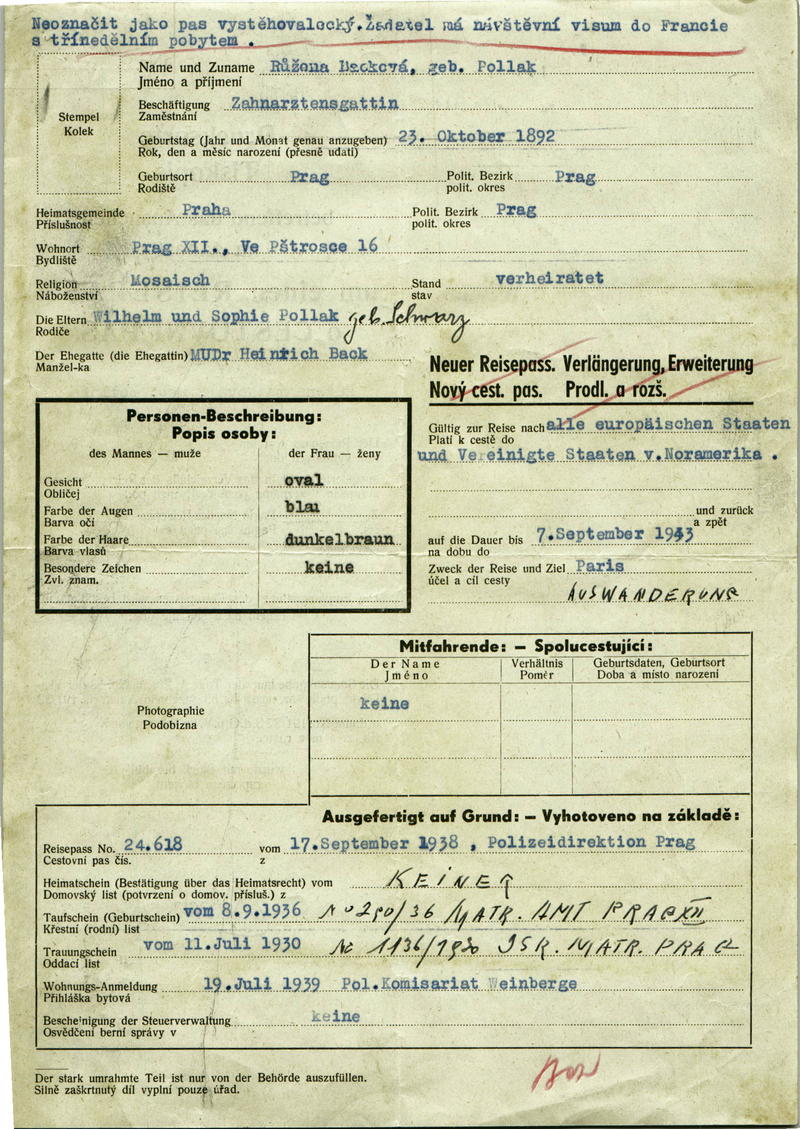 Neoznačit jako pas vystěhovalecký. Žadatel má návštěvní visum do Francie
s třínedělním pobytem .
Stempel
Kolek
Name und Zuname Růžena Backová, geb. Pollak
Jméno a příjmení
Beschäftigung Zahnarztensgattin
Zaměstnání
Geburtstag (Jahr und Monat genau anzugeben) 23. Oktober 1892
Rok, den a měsíc narození (přesně udati)
Geburtsort Prag Polit. Bezirk Prag
Rodiště polit. okres
Heimatsgemeinde Praha Polit. Bezirk Prag
Příslušnost polit. okres
Wohnort Prag XII., Ve Pštrosce 16
Bydliště
Religion Mosaisch Stand verheiratet
Náboženství stav
Die Eltern Wilhelm und Sophie Pollak geb. Schwarz
Rodiče
Der Ehegatte (die Ehegattin) MUDr Heinrich Back
Manžel-ka
Neuer Reisepass. Verlängerung, Erweiterung
Nový cest. pas. Prodl. a rozš.
Personen-Beschreibung:
Popis osoby:
des Mannes — muže der Frau — ženy
Gesicht oval
Obličej
Farbe der Augen blau
Barva očí
Farbe der Haare dunkelbraun
Barva vlasů
Besondere Zeichen keine
Zvl. znam.
Gültig zur Reise nach alle europäischen Staaten
Platí k cestě do
und Vereinigte Staaten v.Noramerika .
und zurück
a zpět
auf die Dauer bis 7.September 1943
na dobu do
Zweck der Reise und Ziel Paris
účel a cíl cesty
AUSWANDERUNG
Mitfahrende: — Spolucestující:
Der Name Verhältnis Geburtsdaten, Geburtsort
Jméno Poměr Doba a místo narození
keine
Photographie
Podobizna
Ausgefertigt auf Grund: — Vyhotoveno na základě:
Reisepass No. 24.618 vom 17.September 1938 , Polizeidirektion Prag
Cestovní pas čís. z
Heimatschein (Bestätigung über das Heimatsrecht) vom KEINER
Domovský list (potvrzení o domov. přísluš.) z
Taufschein (Geburtschein) vom 8.9.1936 No 290/36 MATR. AMT PRAG XII
Křestní (rodní) list
Trauungschein vom 11.Juli 1930 No 1136/1930 ISR. MATR. PRAG
Oddací list
Wohnungs-Anmeldung 19.Juli 1939 Pol.Komisariat Weinberge
Přihláška bytová
Bescheinigung der Steuerverwaltung keine
Osvědčení berní správy v
Der stark umrahmte Teil ist nur von der Behörde auszufüllen.
Silně zaškrtnutý díl vyplní pouze úřad.